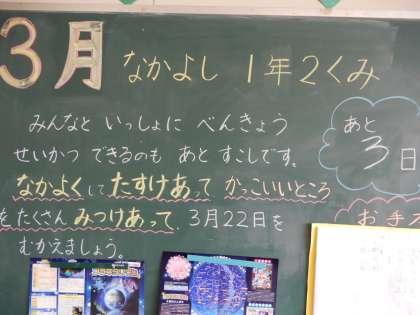 3月 なかよし 1年2くみ
みんなと いっしょに べんきょう
せいかつ できるのも あと すこしです。
なかよくして たすけあって かっこいいところ
を たくさん みつけあって、3月22日を
むかえましょう。
あと
3日
お手